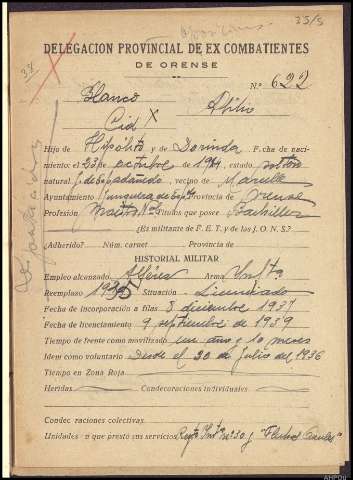 35/5
DELEGACION PROVINCIAL DE EX COMBATIENTES
DE ORENSE
33
Nº 622
Blanco Abilio
Cid X
Hijo de Hipólito y de Dorinda F.cha de naci-
miento: el 23 de octubre de estado soltero
natural vecino de
Ayuntamiento Provincia de Orense
Profesión Maestro Nal Títulos que posee Bachiller
¿Es militante de F.E.T. y de las J.O.N.S.?
¿Adherido? Núm. carnet Provincia de
HISTORIAL MILITAR
Empleo alcanzado Alférez Arma Infta
Reemplazo Situación Licenciado
Fecha de incorporación a filas 3 diciembre 1937
Fecha de licenciamiento 9 septiembre de 1939
Tiempo de frente como movilizado un año y 10 meses
Idem como voluntario Desde el 20 de Julio del 1936
Tiempo en Zona Roja
Heridas Condecoraciones individuales
Condec raciones colectivas
Unidades n que prestó sus servicios Regto Infª nº 30 y "Flechas Azules"
AHPOu